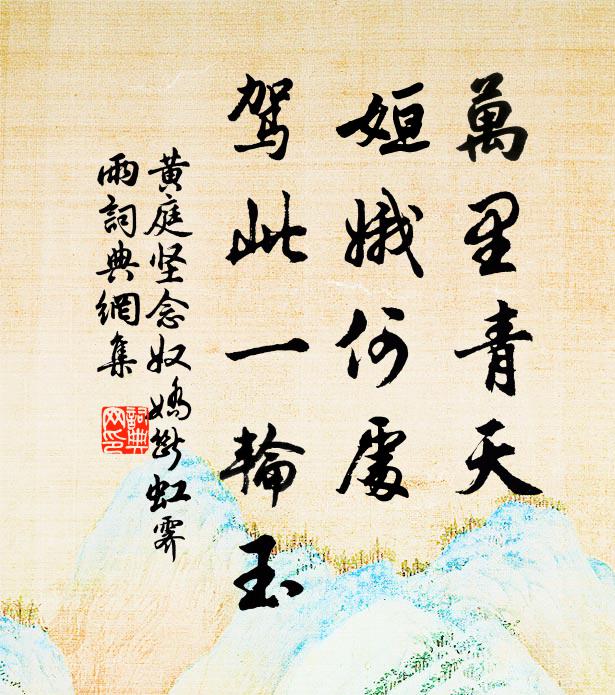 萬里青天
姮娥何處
駕此一輪玉
黄庭坚念奴嬌斷虹霽
雨詞典網集
詞典
网印